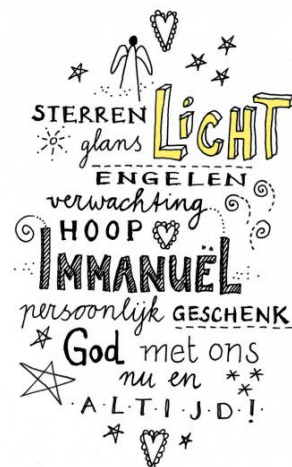 STERREN LICHT
glans
ENGELEN
verwachting
HOOP
IMMANUËL
persoonlijk GESCHENK
God met ons
nu en
A·L·T·I·J·D!